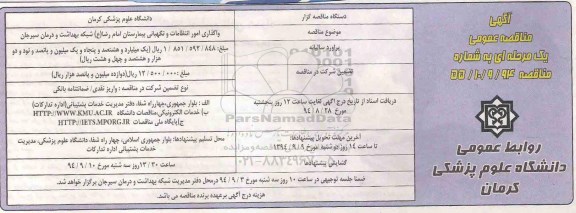 آگهی
مناقصه عمومی
یک مرحله ای به شماره
مناقصه ۵۵/۱۰/۵/۹۴
روابط عمومی
دانشگاه علوم پزشکی
کرمان
دستگاه مناقصه گزار
دانشگاه علوم پزشکی کرمان
موضوع مناقصه
واگذاری امور انتظامات و نگهبانی بیمارستان امام رضا(ع) شبکه بهداشت و درمان سیرجان
برآورد سالیانه
مبلغ: ۱/۸۵۱/۵۹۲/۸۴۸ ریال (یک میلیارد و هشتصد و پنجاه و یک میلیون و پانصد و نود و دو هزار و هشتصد و چهل و هشت ریال)
تضمین شرکت در مناقصه
مبلغ: ۱۲/۵۰۰/۰۰۰ ریال(دوازده میلیون و پانصد هزار ریال)
نوع تضمین شرکت در مناقصه : واریز نقدی / ضمانتنامه بانکی
دریافت اسناد از تاریخ درج آگهی لغایت ساعت ۱۲ روز پنجشنبه
مورخ ۹۴/۸/۲۸
الف : بلوار جمهوری-چهارراه شفا، دفتر مدیریت خدمات پشتیبانی(اداره تدارکات)
ب) خدمات الکترونیکی دانشگاه HTTP://WWW.KMU.AC.IR
ج)پایگاه ملی مناقصات HTTP://IETS.MPORG.IR
آخرین مهلت تحویل پیشنهادها:
تا ساعت ۱۴ روز دوشنبه مورخ ۱۳۹۴/۹/۹
محل تسلیم پیشنهادها: بلوار جمهوری اسلامی، چهار راه شفا، دانشگاه علوم پزشکی، مدیریت خدمات پشتیبانی اداره تدارکات
گشایش پیشنهادها
ساعت ۱۳:۳۰ روز سه شنبه مورخ ۹۴/۹/۱۰
ضمنا جلسه توجیهی در ساعت ۱۰ روز سه شنبه مورخ ۹۴/۹/۳ درمحل دفتر مدیریت شبکه بهداشت و درمان سیرجان برگزار خواهد شد.
هزینه درج آگهی برعهده برنده مناقصه می باشد.
ParsNamadData